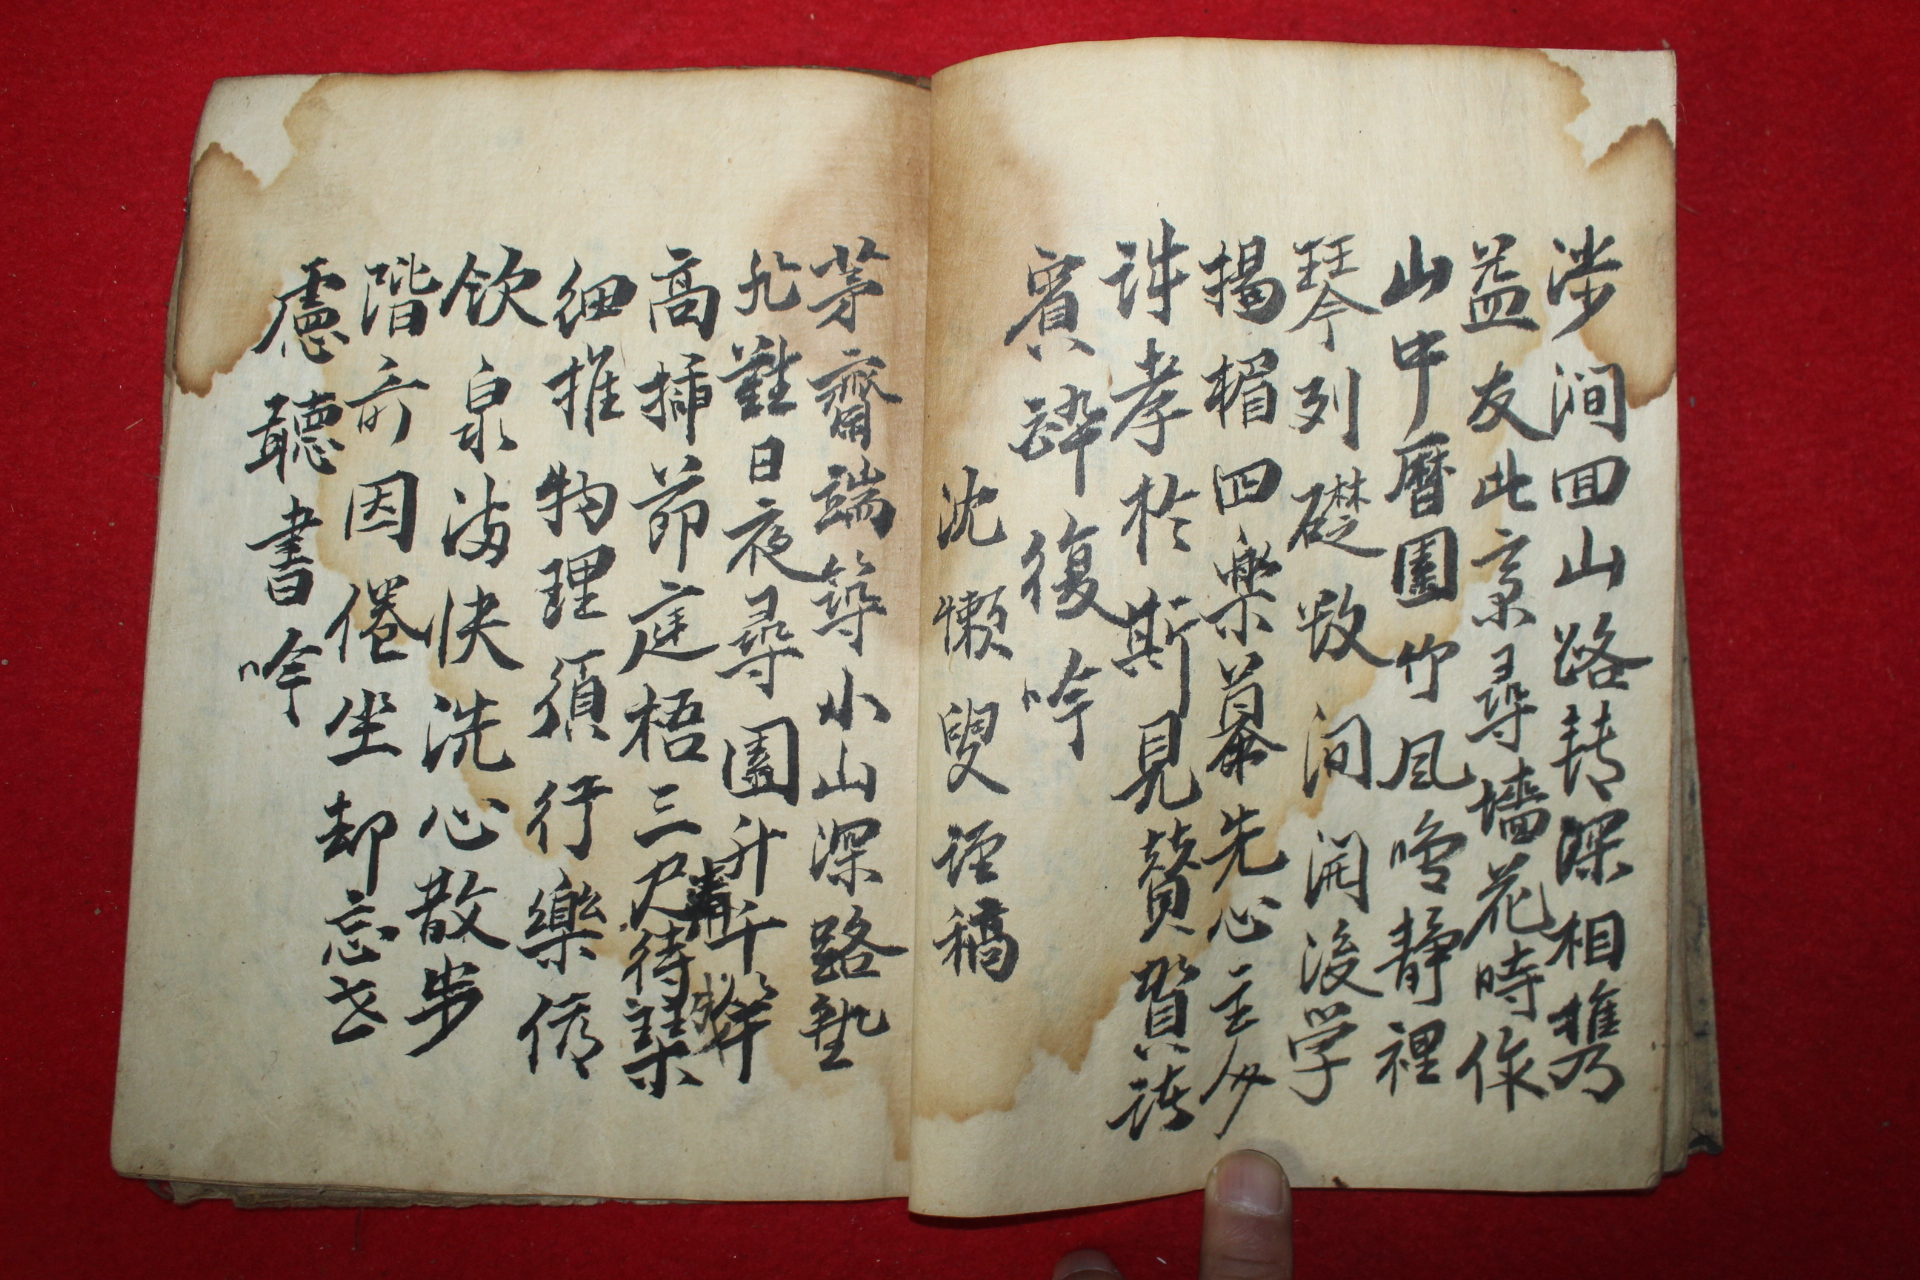 涉澗回山路轉深相携乃
益友此京尋墻花時作
山中曆園竹風鳴静裡
琴列礎数间開後学
揭楣四樂慕先心主
孝於斯見贊賀詩
賓醉復吟
沈懶叟謹稿
茅齋端築小山深路塾
孔難日夜尋園千竿
高揷節庭梧三尺待琹
細推物理須行樂偶
飲泉快洗心散步
階前因倦坐却忘老
慮聽書吟